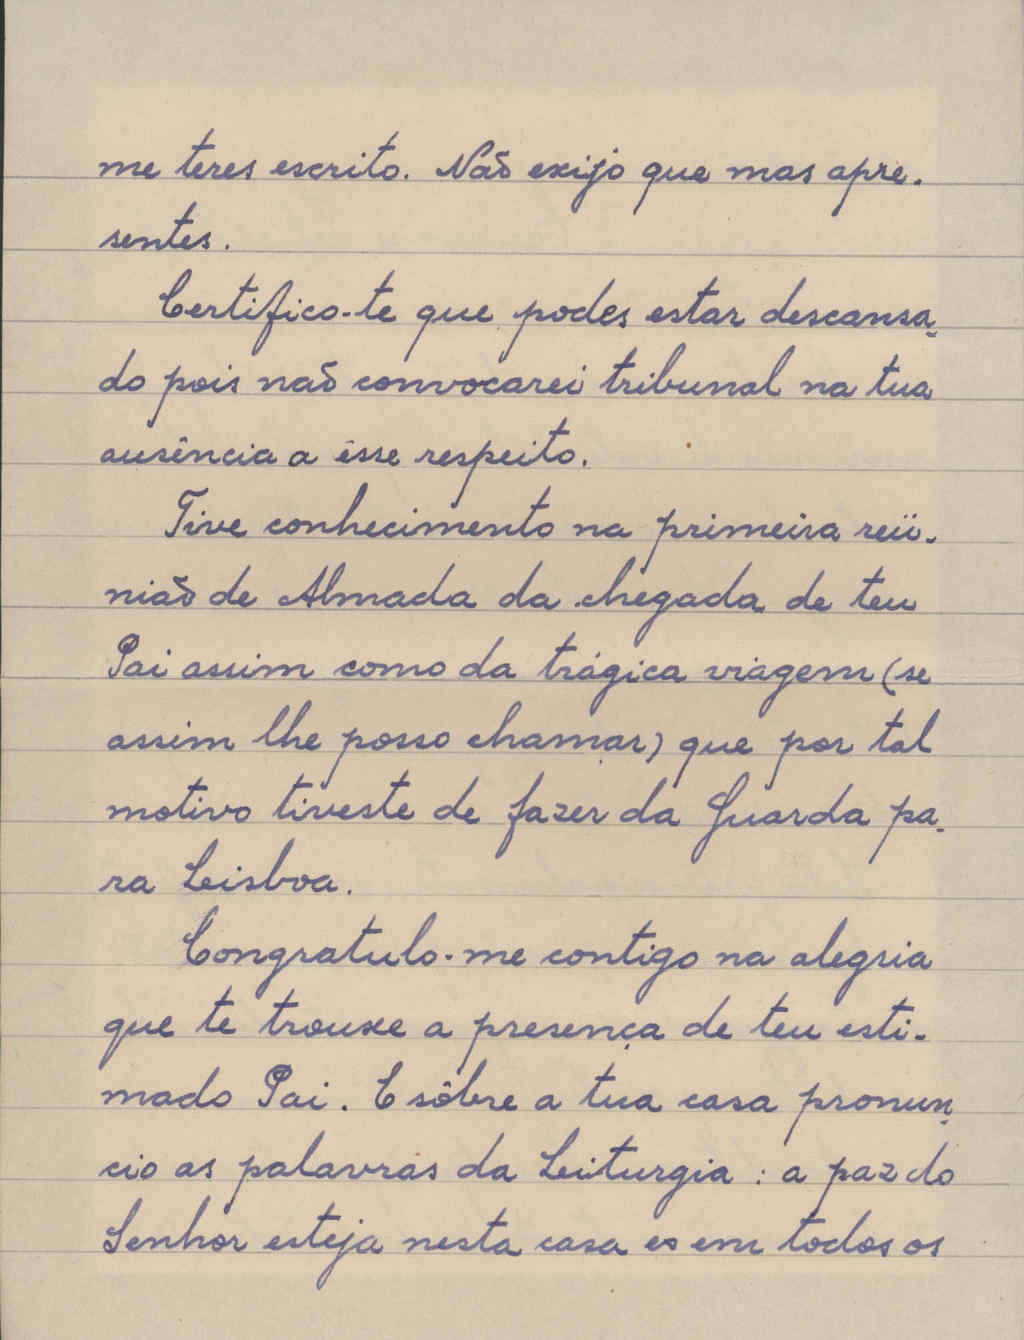 me teres escrito. Não exijo que mas apre-
sentes.
Certifico-te que podes estar descansa-
do pois não convocarei tribunal na tua
ausência a êsse respeito.
Tive conhecimento na primeira reü-
nião de Almada da chegada de teu
Pai assim como da trágica viagem (se
assim lhe posso chamar) que por tal
motivo tiveste de fazer da Guarda pa-
ra Lisboa.
Congratulo-me contigo na alegria
que te trouxe a presença de teu esti-
mado Pai. E sôbre a tua casa pronun-
cio as palavras da Liturgia: a paz do
Senhor esteja nesta casa e em todos os